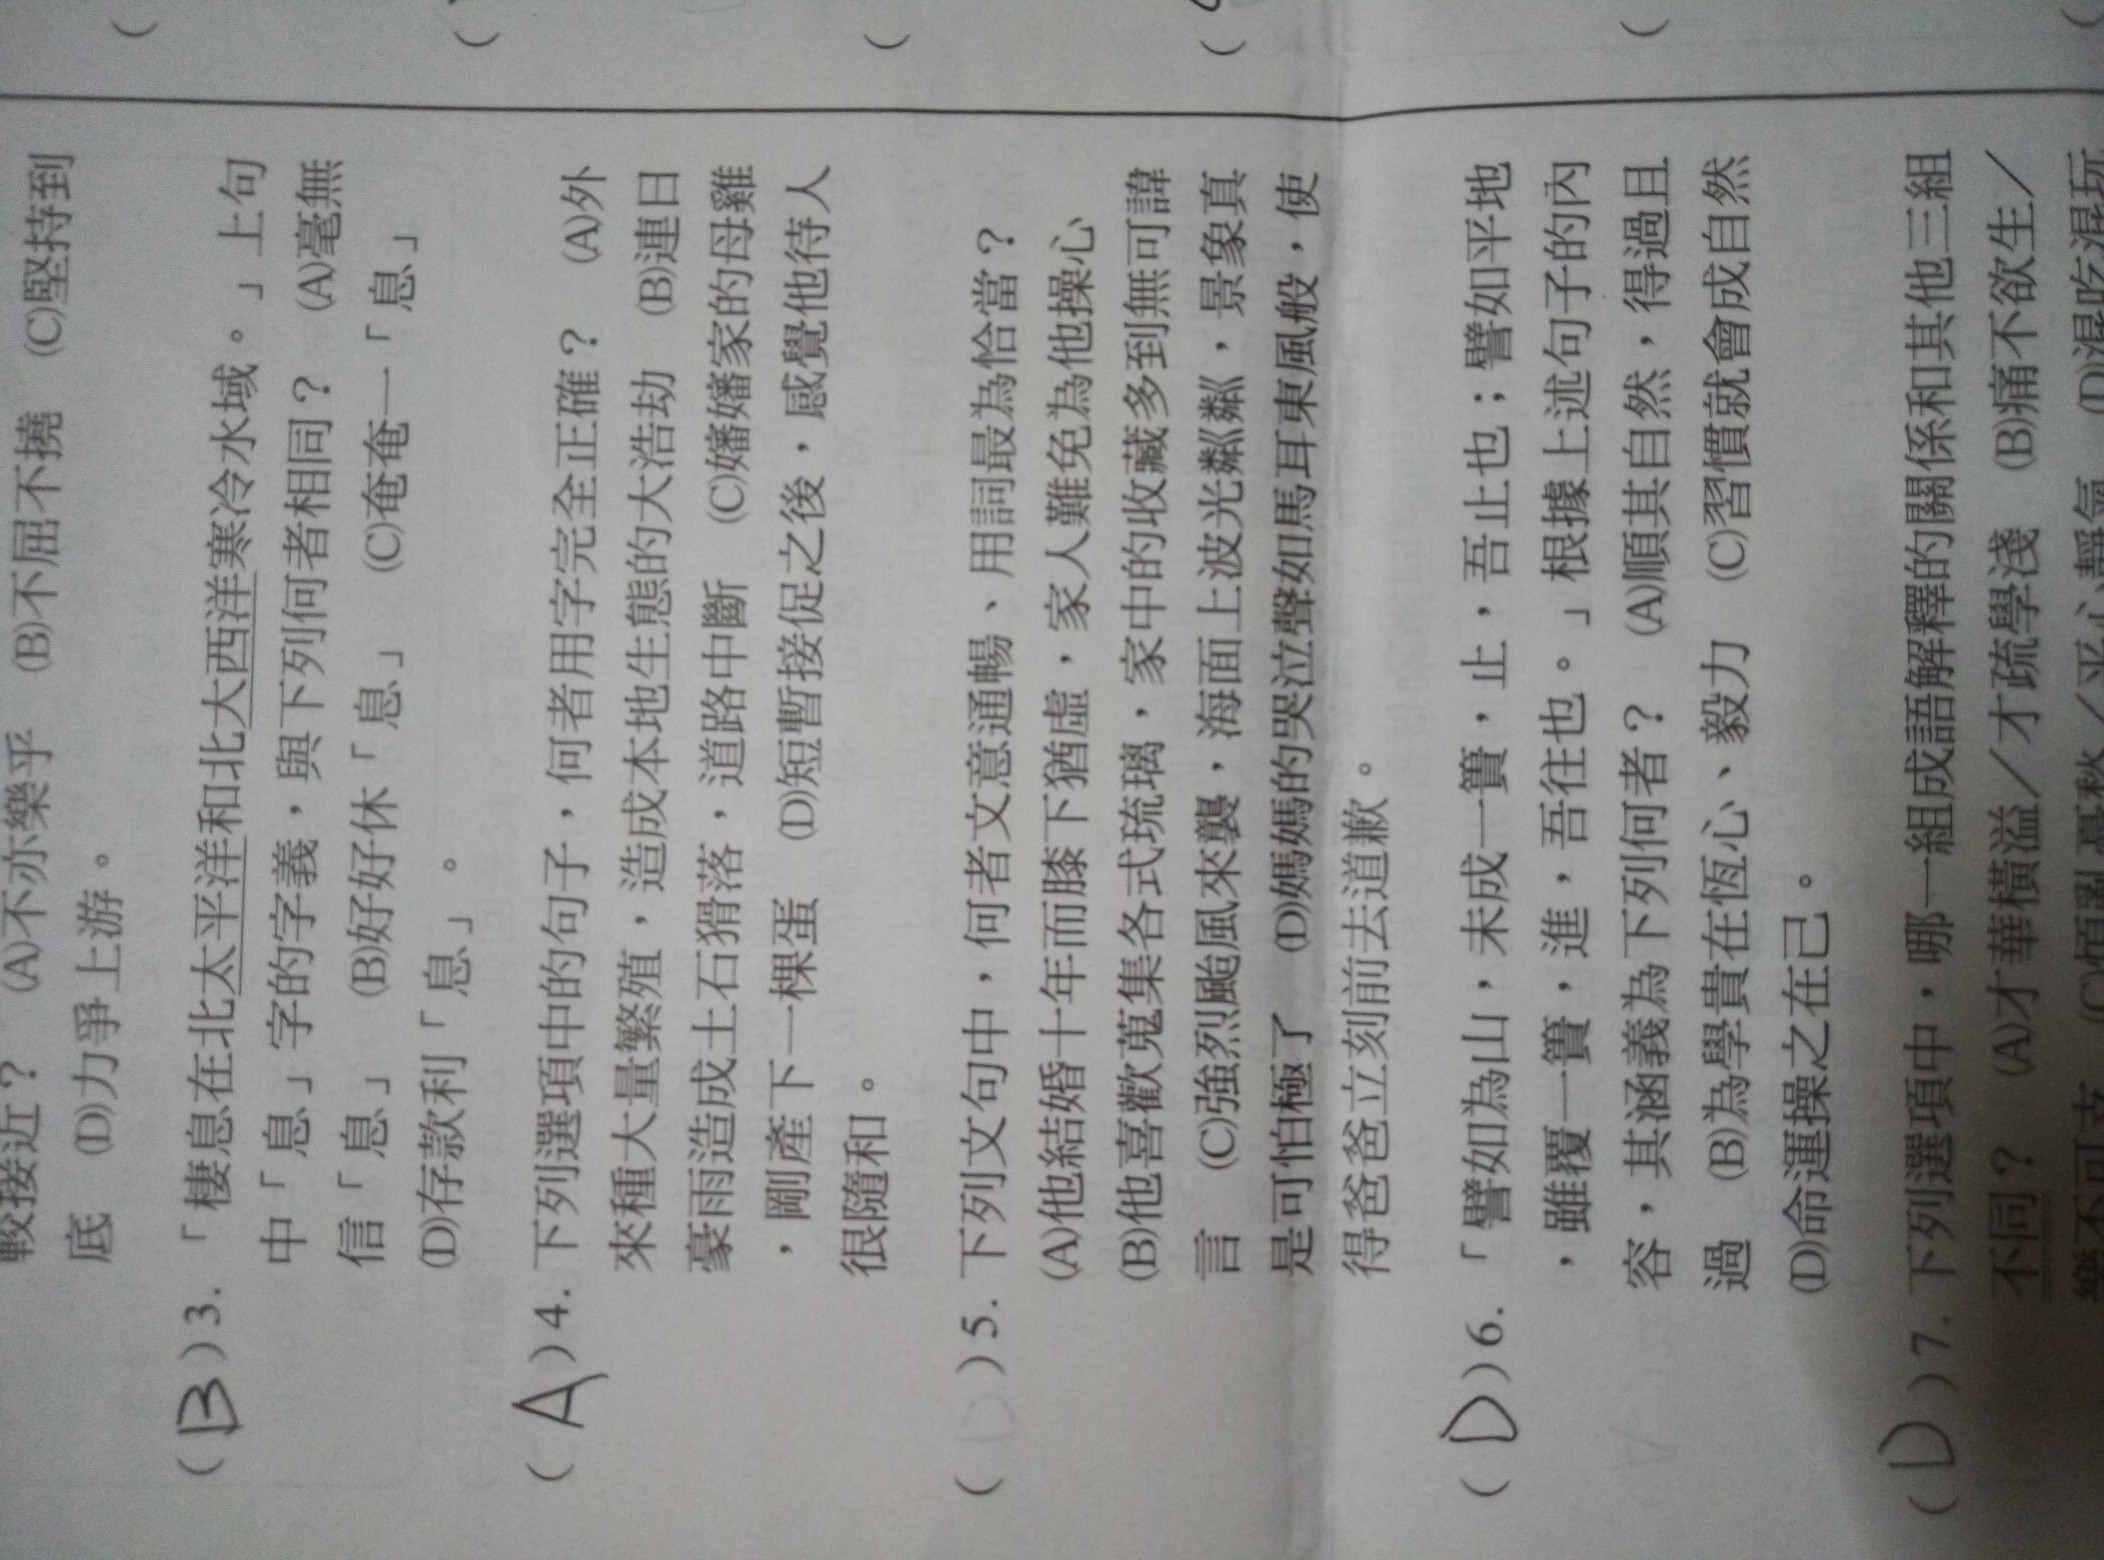 較接近？　(A)不亦樂乎　(B)不屈不撓　(C)堅持到
底　(D)力爭上游。
(B)3.「棲息在北太平洋和北大西洋寒冷水域。」上句
中「息」字的字義，與下列何者相同？　(A)毫無
信「息」　(B)好好休「息」　(C)奄奄一「息」
(D)存款利「息」。
(A)4.下列選項中的句子，何者用字完全正確？　(A)外
來種大量繁殖，造成本地生態的大浩劫　(B)連日
豪雨造成土石猾落，道路中斷　(C)嬸嬸家的母雞
，剛產下一棵蛋　(D)短暫接促之後，感覺他待人
很隨和。
(D)5.下列文句中，何者文意通暢、用詞最為恰當？
(A)他結婚十年而膝下猶虛，家人難免為他操心
(B)他喜歡蒐集各式琉璃，家中的收藏多到無可諱
言　(C)強烈颱風來襲，海面上波光粼粼，景象真
是可怕極了　(D)媽媽的哭泣聲如馬耳東風般，使
得爸爸立刻前去道歉。
(D)6.「譬如為山，未成一簣，止，吾止也；譬如平地
，雖覆一簣，進，吾往也。」根據上述句子的內
容，其涵義為下列何者？　(A)順其自然，得過且
過　(B)為學貴在恆心、毅力　(C)習慣就會成自然
(D)命運操之在己。
(D)7.下列選項中，哪一組成語解釋的關係和其他三組
不同？　(A)才華橫溢／才疏學淺　(B)痛不欲生／
樂不可支　(C)　／平心靜氣　(D)混吃混玩